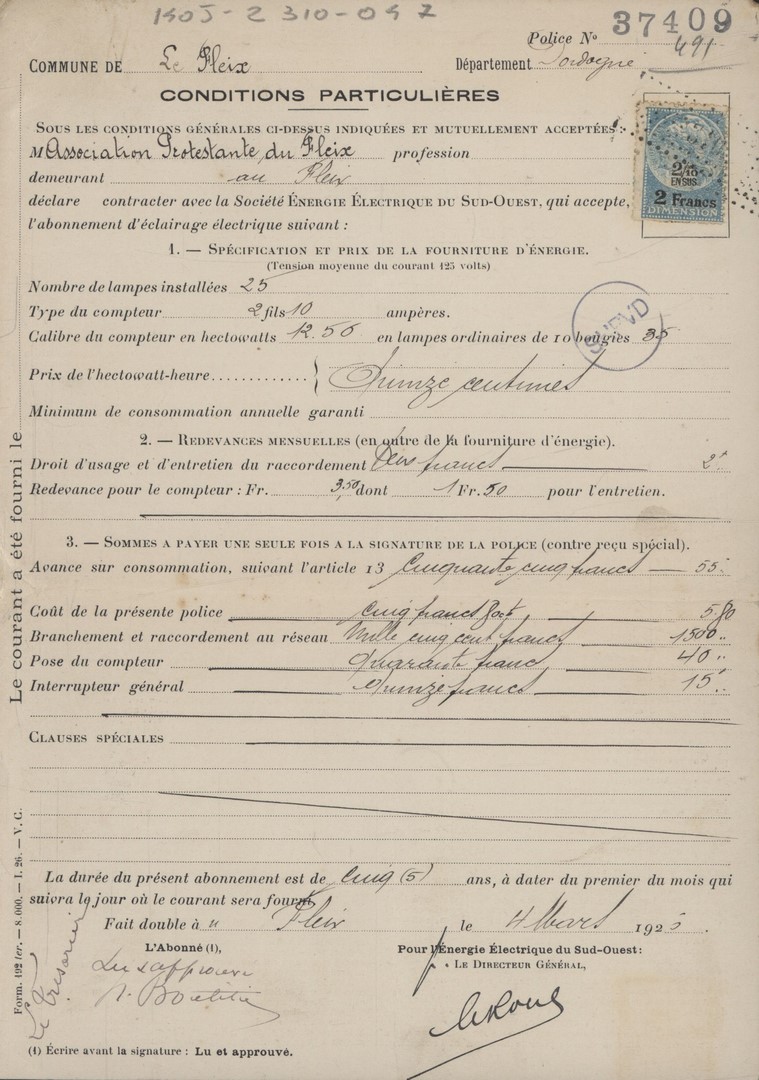 1905-2 310-047
37409
Police N° 491
COMMUNE DE Le Fleix Département Dordogne
CONDITIONS PARTICULIÈRES
SOUS LES CONDITIONS GÉNÉRALES CI-DESSUS INDIQUÉES ET MUTUELLEMENT ACCEPTÉES :
M Association Protestante du Fleix profession
demeurant au Fleix
déclare contracter avec la Société ÉNERGIE ÉLECTRIQUE DU SUD-OUEST, qui accepte,
l'abonnement d'éclairage électrique suivant :
2/10
EN SUS
2 Francs
DIMENSION
1. — SPÉCIFICATION ET PRIX DE LA FOURNITURE D'ÉNERGIE.
(Tension moyenne du courant 125 volts)
Nombre de lampes installées 25
Type du compteur 2 fils 10 ampères.
Calibre du compteur en hectowatts 12.50 en lampes ordinaires de 10 bougies 35
Prix de l'hectowatt-heure............ } Quinze centimes
Minimum de consommation annuelle garanti
2. — REDEVANCES MENSUELLES (en outre de la fourniture d'énergie).
Droit d'usage et d'entretien du raccordement Deux francs 2"
Redevance pour le compteur : Fr. 3,50 dont 1 Fr. 50 pour l'entretien.
3. — SOMMES A PAYER UNE SEULE FOIS A LA SIGNATURE DE LA POLICE (contre reçu spécial).
Avance sur consommation, suivant l'article 13 Cinquante cinq francs — 55.
Coût de la présente police Cinq francs 80ct 5 80
Branchement et raccordement au réseau Mille cinq cent francs 1500 "
Pose du compteur Quarante francs 40 "
Interrupteur général Quinze francs 15 "
CLAUSES SPÉCIALES
La durée du présent abonnement est de Cinq (5) ans, à dater du premier du mois qui
suivra le jour où le courant sera fourni.
Fait double à u Fleix le 4 Mars 192
L'Abonné (1), Pour l'Énergie Électrique du Sud-Ouest :
LE DIRECTEUR GÉNÉRAL,
Lu & approuvé
(1) Écrire avant la signature : Lu et approuvé.
Le Trésorier
Le courant a été fourni le
Form. 192 ter. — 8.000. — 1. 26. — V. C.